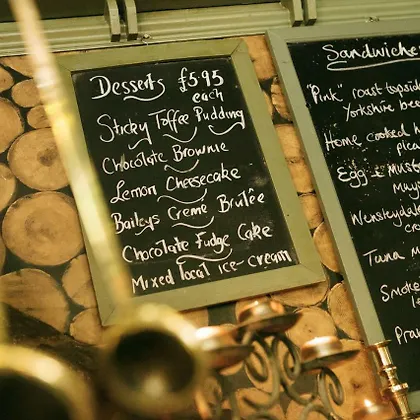 Desserts £5.95
each
Sticky Toffee Pudding
Chocolate Brownie
Lemon Cheesecake
Baileys Creme Brulêe
Chocolate Fudge Cake
Mixed local ice-cream
Sandwiche
"Pink" roast topsid
Yorkshire
Home cooked
Egg &
Wensleydal
Tuna
Smoke